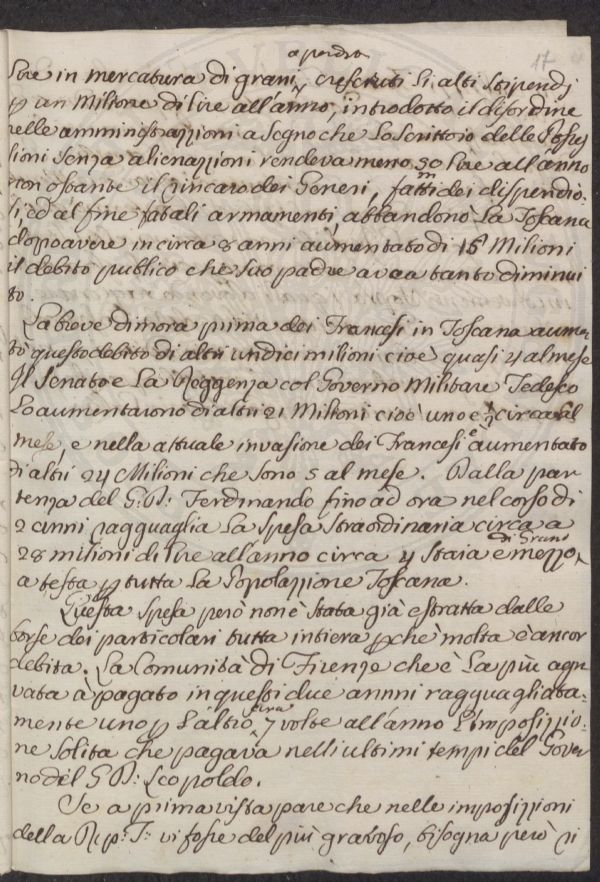 17
a perdro
lire in mercatura di grani, cresciuti li alti stipendj
p un Milione di lire all'anno, introdotto il disordine
nelle amministrazzioni a segno che lo scrittoio delle Posses
sioni senza alienazzioni rendeva meno 50 lire all'anno
non ostante il rincaro dei Generi, fatti dei dispendio-
si, ed al fine fatali armamenti, abbandonò la Toscana
dopo avere in circa 8 anni aumentato di 15 Milioni
il debito publico che suo padre aveva tanto diminui
to.
La breve dimora prima dei Francesi in Toscana aumen-
tò questo debito di altri undici milioni cioè quasi 4 al mese
Il Senato e La Reggenza col Governo Militare Tedesco
Lo aumentarono di altri 21 Milioni cioè uno e ½ circa al
mese, e nella attuale invasione dei Francesi è aumentato
di altri 24 Milioni che sono 5 al mese. Dalla par
tenza del G: D: Ferdinando fino ad ora nel corso di
2 anni ragguaglia La spesa straordinaria circa a
28 milioni di lire all'anno circa 4 staia di Grano e mezzo
a testa p tutta La Popolazzione Toscana.
Questa spesa però non è stata già estratta dalle
borse dei particolari tutta intiera pchè molta è ancor
debita. La Comunità di Firenze che è La più agra
vata à pagato in questi due annni ragguagliata-
mente uno p L'altro, circa 7 volte all'anno L'imposizzio-
ne solita che pagava nelli ultimi tempi del Gover
no del G D: Leopoldo.
Se a prima vista pare che nelle imposizzioni
della Rep: T: vi fosse del più gravoso, bisogna però ri